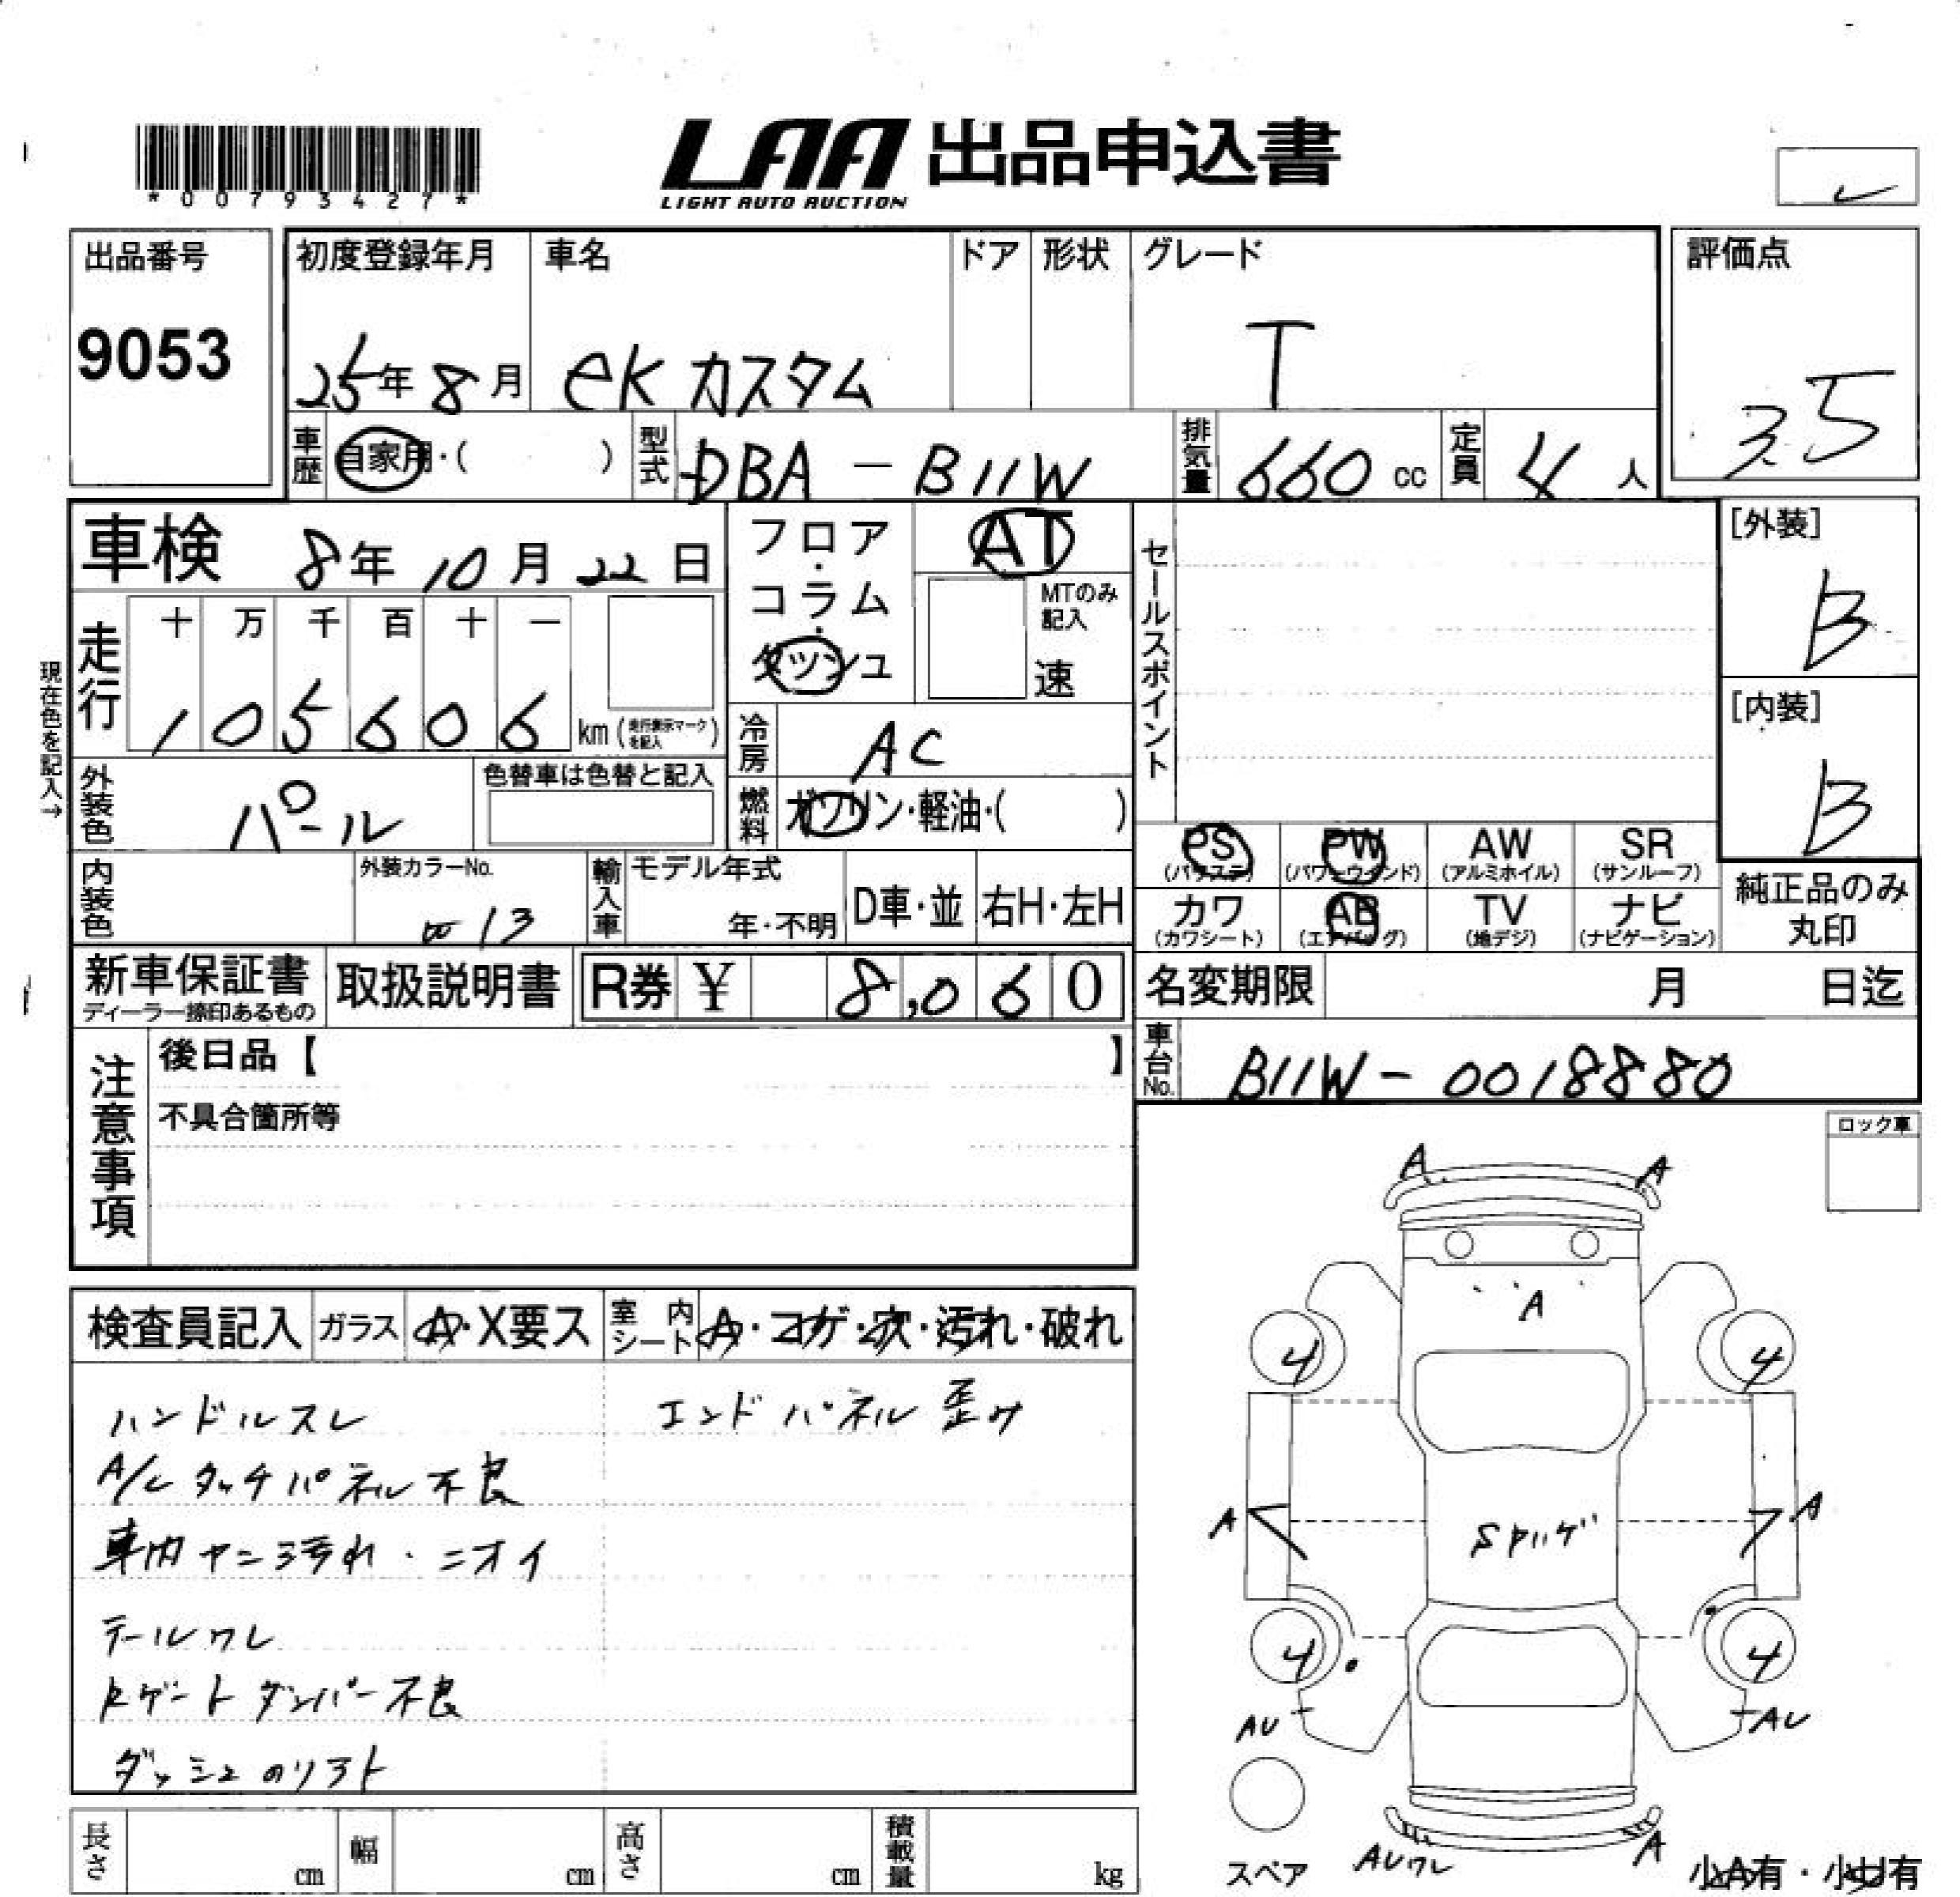 *00793427*
LAA 出品申込書
LIGHT AUTO AUCTION
出品番号
9053
初度登録年月
25年8月
車名
eKカスタム
ドア
形状
グレード
T
評価点
3.5
車歴
自家用・( )
型式
DBA-B11W
排気量
660 cc
定員
4人
車検 8年10月22日
フロア・コラム・ダッシュ
AT
MTのみ記入
速
セールスポイント
[外装]
B
[内装]
B
現在色を記入→
走行
十 万 千 百 十 一
1 0 5 6 0 6
km(走行表示マークを記入)
冷房
AC
外装色
パール
色替車は色替と記入
燃料
ガソリン・軽油・( )
PS (パワステ)
PW (パワーウインド)
AW (アルミホイル)
SR (サンルーフ)
カワ (カワシート)
AB (エアバッグ)
TV (地デジ)
ナビ (ナビゲーション)
純正品のみ丸印
内装色
外装カラーNo.
W13
輸入車
モデル年式
年・不明
D車・並
右H・左H
新車保証書
ディーラー捺印あるもの
取扱説明書
R券 ¥ 8,060
名変期限 月 日迄
車台No.
B11W-0018880
注意事項
後日品【 】
不具合箇所等
ロック車
検査員記入
ガラス
A・X要ス
室内シート
A・コゲ・穴・汚れ・破れ
ハンドルスレ
A/Cタッチパネル不良
車内ヤニ汚れ・ニオイ
テールワレ
Rゲートダンパー不良
ダッシュのリフト
エンドパネル歪み
A
A
A
4
4
A
Sハゲ
A
4
4
AU
AU
スペア
AUワレ
A
小A有・小U有
長さ cm
幅 cm
高さ cm
積載量 kg